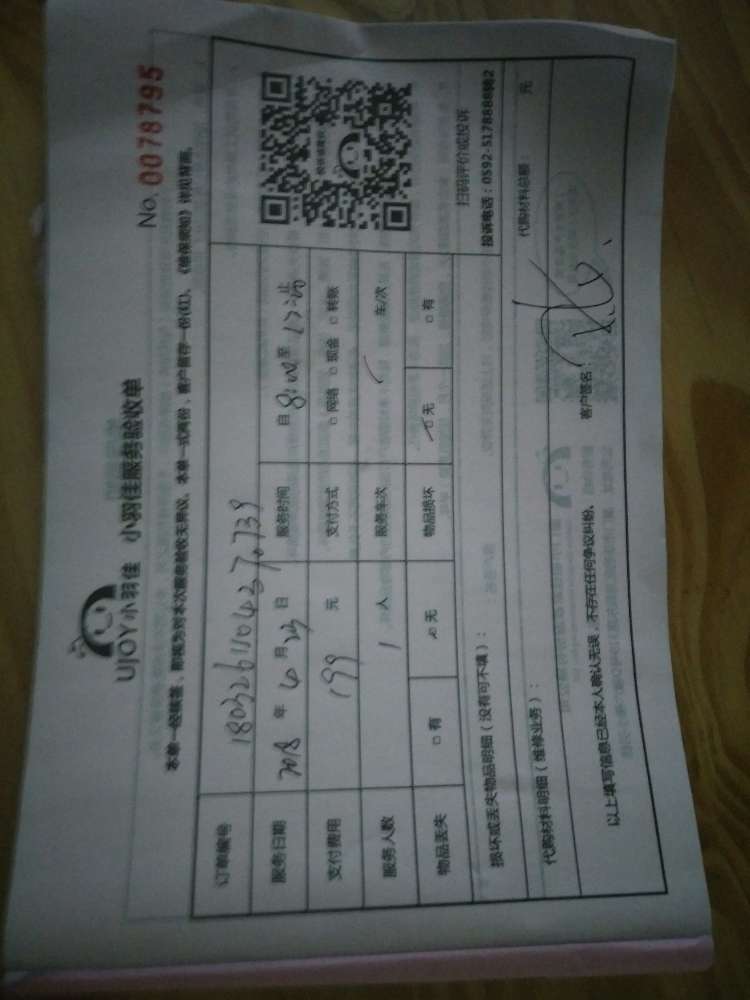 No. 0078795
UJOY小羽佳 小羽佳服务验收单
本单一经核签，即视为对本次服务验收无异议。本单一式两份，客户留存一份(红)、《维保须知》详见背面。
订单编号 1803261104370739
服务日期 2018 年 月 日 服务时间 自 8:00 至 12:
支付费用 199 元 支付方式 □ 网络 □ 现金 □ 转账
服务人数 1 人 服务车次 车/次
物品丢失 □ 有 □ 无 物品损坏 □ 无 □ 有
扫码评价或投诉
投诉电话：0592-5178888转2
损坏或丢失物品明细（没有可不填）：
代购材料明细（维修业务）： 代购材料总额： 元
以上填写信息已经本人确认无误，不存在任何争议纠纷。 客户签名：